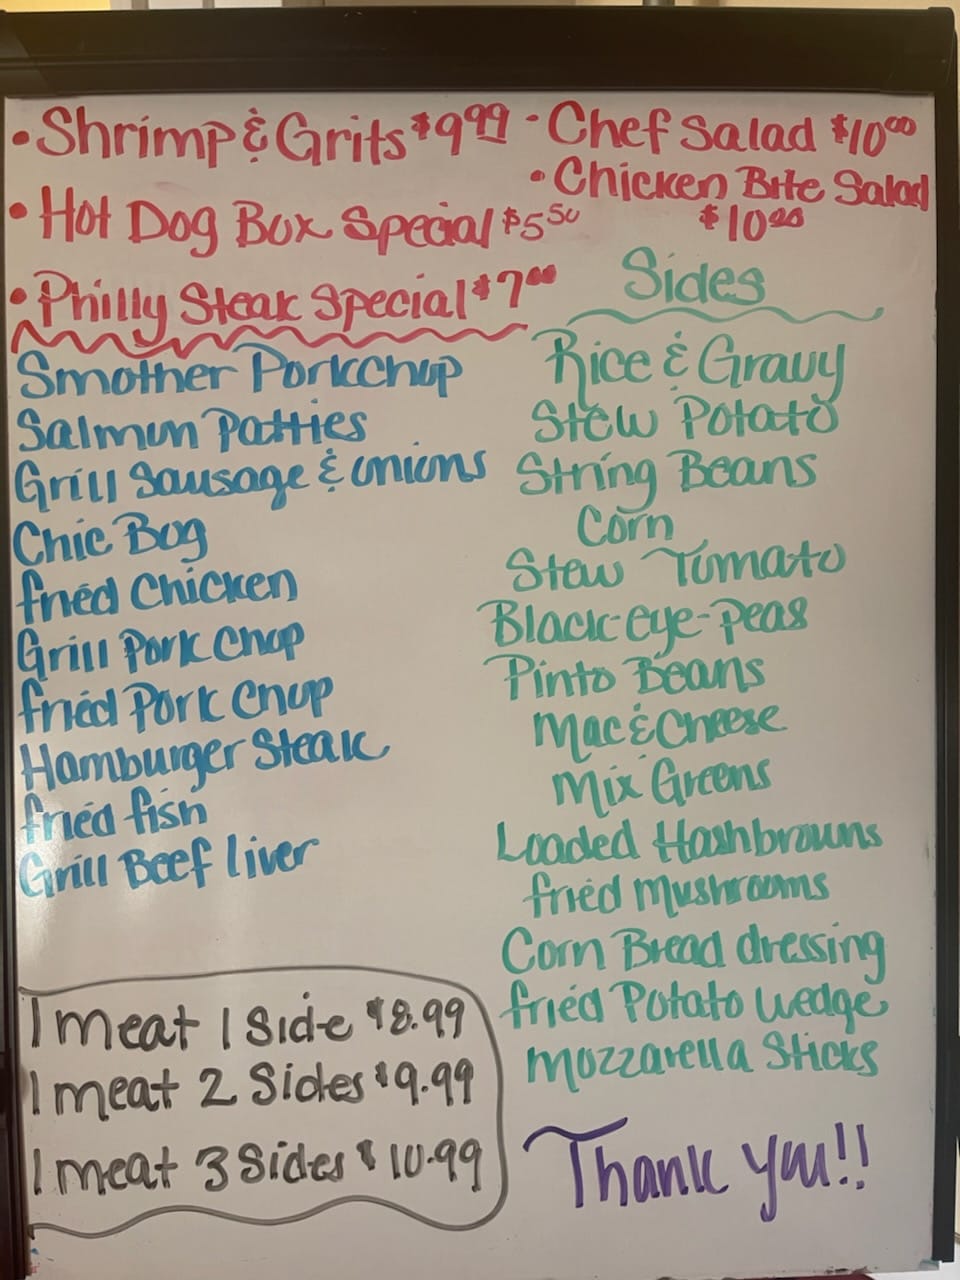 • Shrimp & Grits $9.99
• Hot Dog Box Special $5.50
• Philly Steak Special $7.00
• Chef Salad $10.00
• Chicken Bite Salad
$10.00
Smother Porkchop
Salmon Patties
Grill Sausage & onions
Chic Bog
fried Chicken
Grill Pork Chop
fried Pork Chop
Hamburger Steak
fried fish
Grill Beef liver
1 meat 1 Side $8.99
1 meat 2 Sides $9.99
1 meat 3 Sides $10.99
Sides
Rice & Gravy
Stew Potato
String Beans
Corn
Stew Tomato
Black-eye-peas
Pinto Beans
Mac & Cheese
Mix Greens
Loaded Hashbrowns
fried Mushrooms
Corn Bread dressing
fried Potato wedge
Mozzarella Sticks
Thank you!!